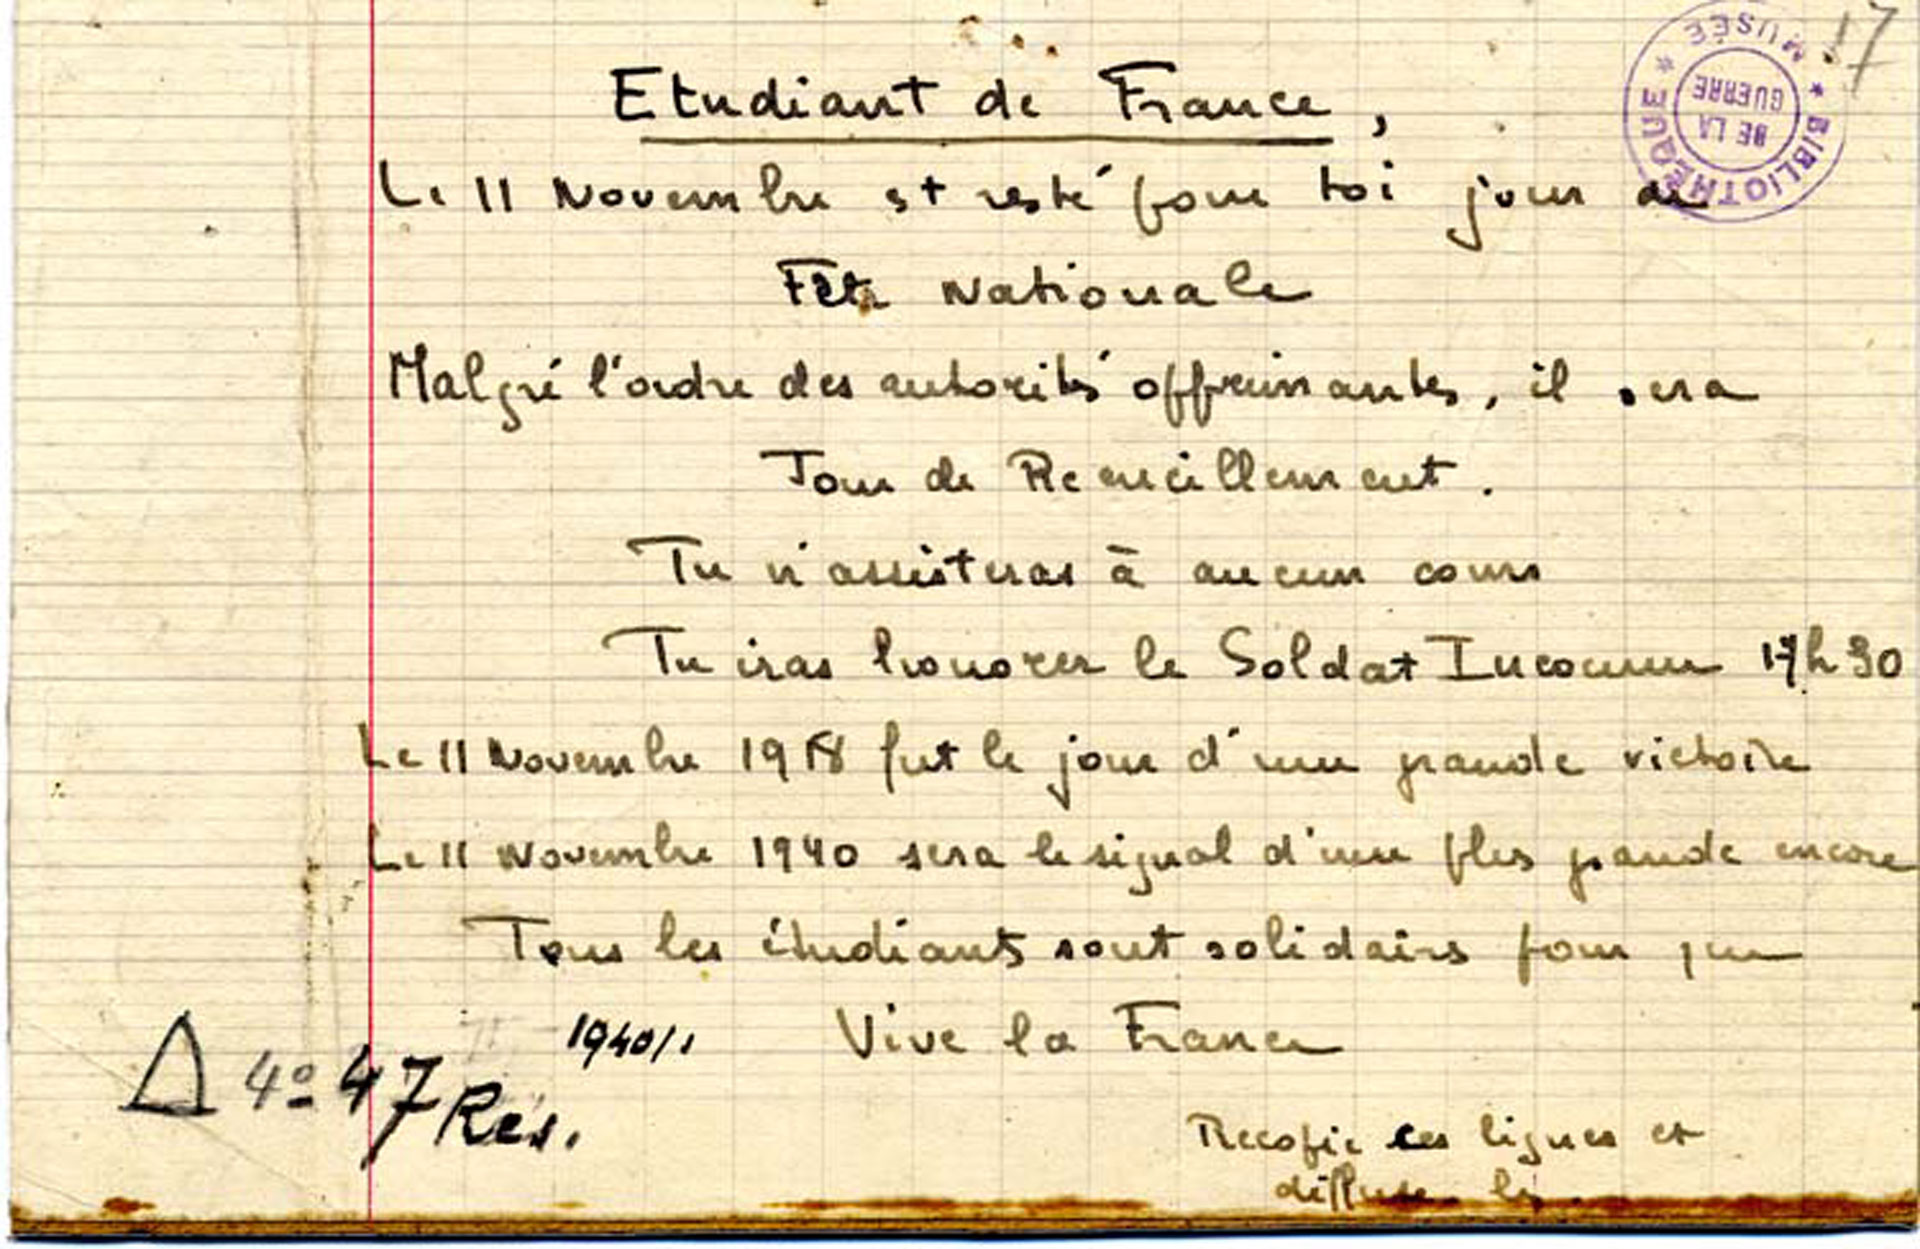 17
MUSÉE
* BIBLIOTHÈQUE *
DE LA
GUERRE
Etudiant de France,
Le 11 Novembre est resté pour toi jour de
Fête Nationale
Malgré l'ordre des autorités opprimantes, il sera
Jour de Recueillement.
Tu n'assisteras à aucun cours
Tu iras honorer le Soldat Inconnu 17h30
Le 11 Novembre 1918 fut le jour d'une grande victoire
Le 11 Novembre 1940 sera le signal d'une plus grande encore
Tous les étudiants sont solidaires pour que
Vive la France
1940/1
Δ 4º 47 Rés.
Recopie ces lignes et
diffuse les.